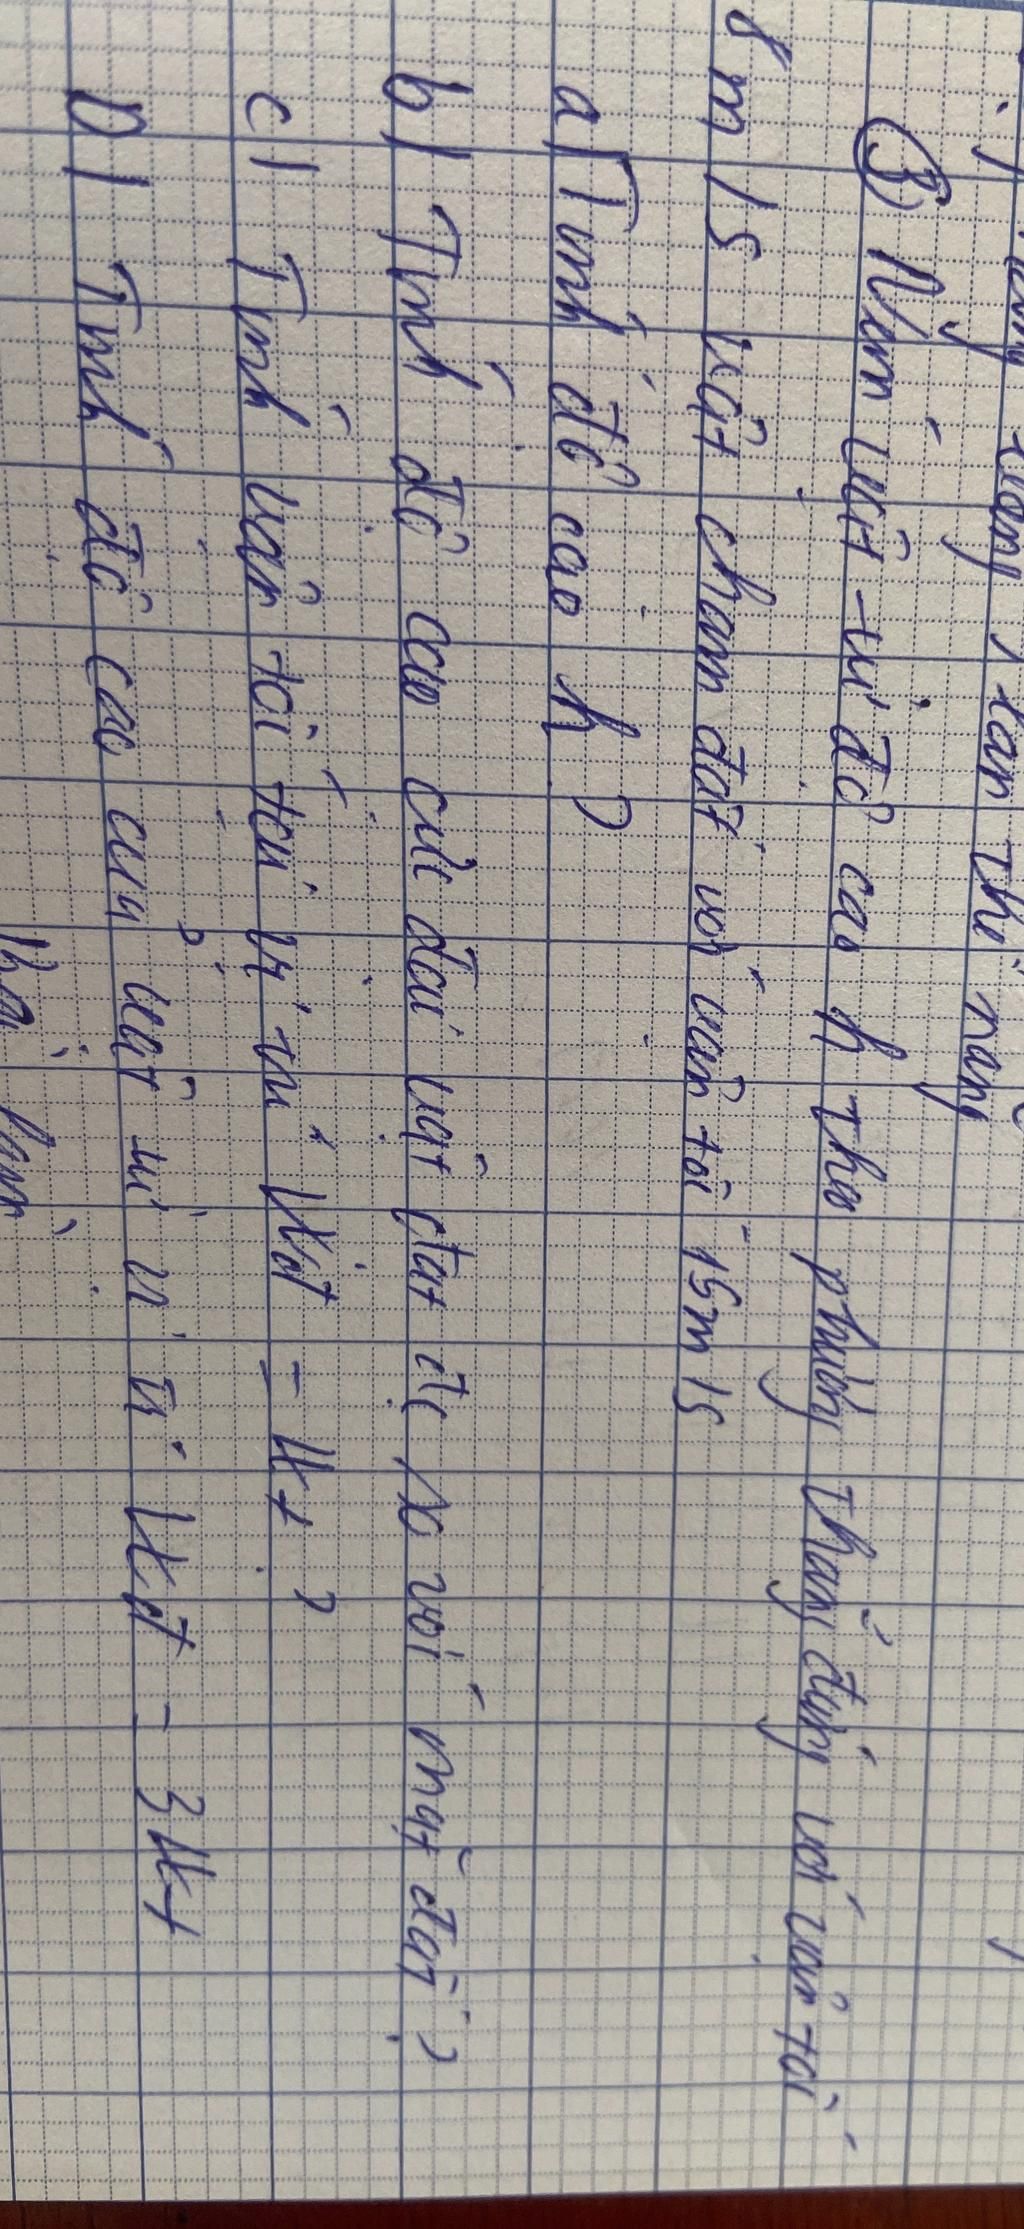 ③ Ném vật từ độ cao h theo phương thẳng đứng với vận tốc
8 m/s vật chạm đất với vận tốc 15m/s
a/ Tính độ cao h?
b/ Tính độ cao cực đại vật đạt đc so với mặt đất?
c/ Tính vận tốc tại vị trí Wđ = Wt?
D/ Tính độ cao của vật tại vị trí Wđ = 3Wt